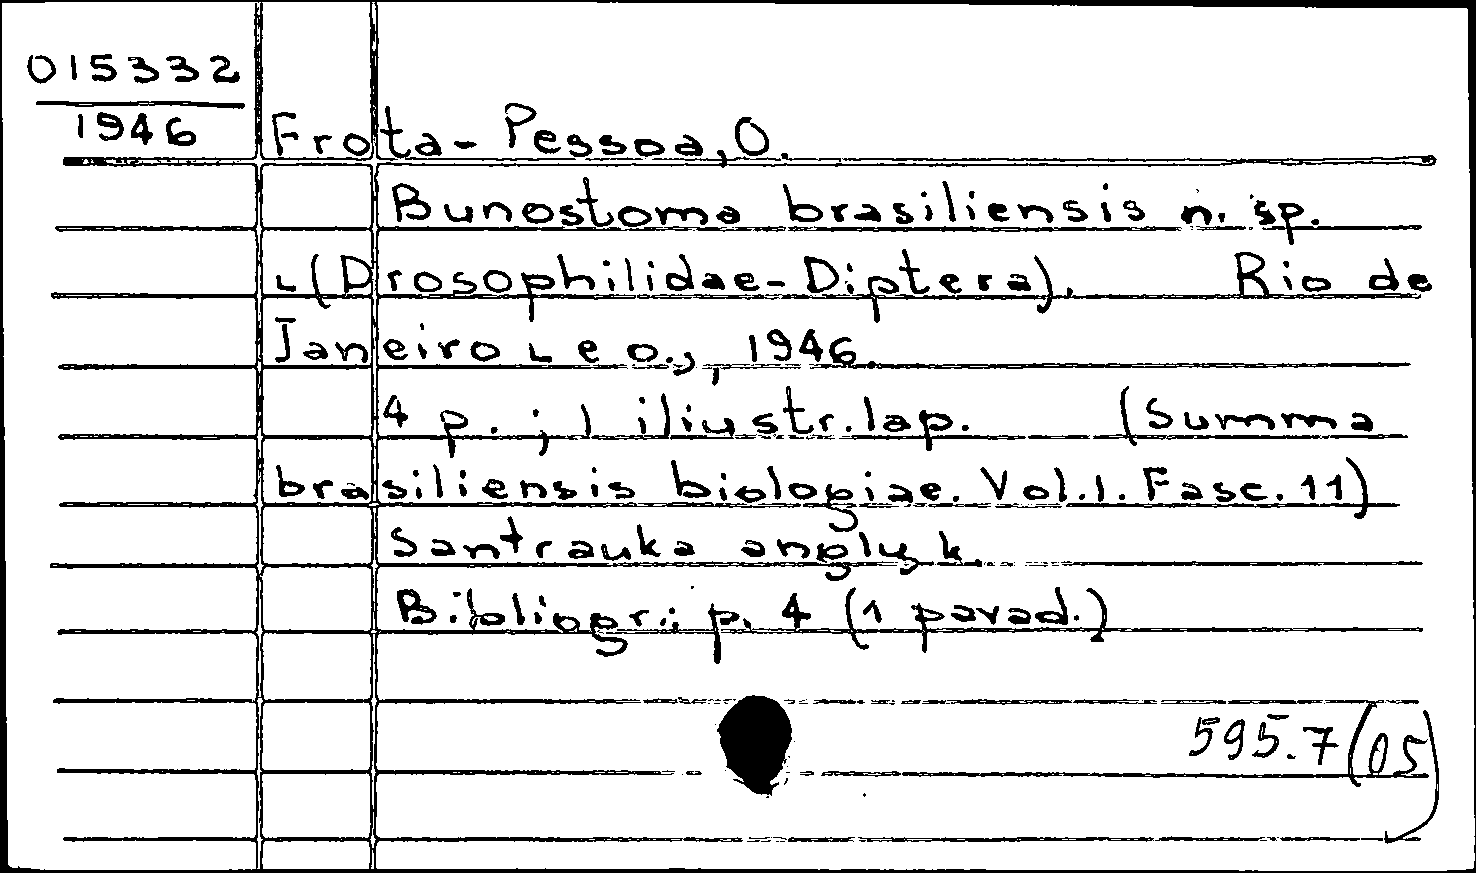 015332
1946
Frota-Pessoa, O.
Bunostoma brasiliensis n. sp.
∟(Drosophilidae-Diptera). Rio de
Janeiro ∟ e o.>, 1946.
4 p. ; 1 iliustr. lap. (Summa
brasiliensis biologiae. Vol. 1. Fasc. 11)
Santrauka anglų k.
Bibliogr.: p. 4 (1 pavad.)
595.7(05)